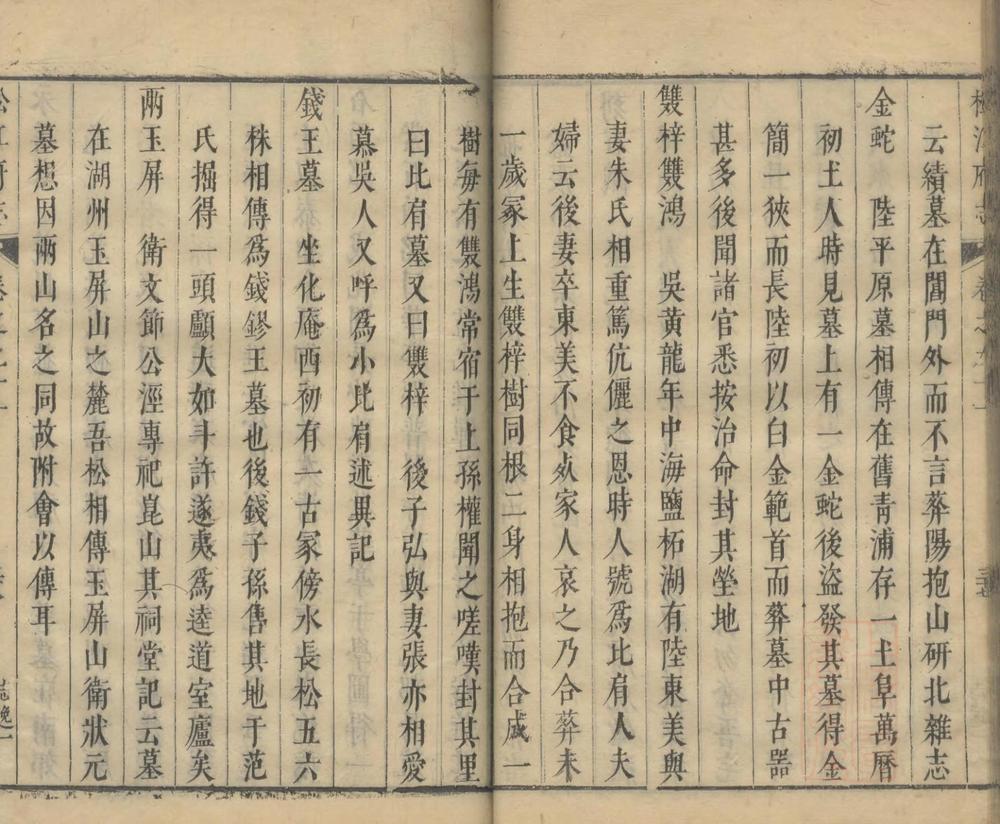 云績墓在閶門外而不言葬陽抱山硏北雜志
金蛇　陸平原墓相傳在舊靑浦存一土阜萬曆
初土人時見墓上有一金蛇後盜發其墓得金
簡一狹而長陸初以白金範首而葬墓中古器
甚多後聞諸官悉按治命封其塋地
雙梓雙鴻　吳黃龍年中海鹽柘湖有陸東美與
妻朱氏相重篤伉儷之恩時人號爲比肩人夫
婦云後妻卒東美不食死家人哀之乃合葬未
一歲冢上生雙梓樹同根二身相抱而合成一
樹每有雙鴻常宿于上孫權聞之嗟嘆封其里
曰比肩墓又曰雙梓　後子弘與妻張亦相愛
慕吳人又呼爲小比肩述異記
錢王墓　坐化庵西初有一古冢傍水長松五六
株相傳爲錢鏐王墓也後錢子孫售其地于范
氏掘得一頭顱大如斗許遂夷爲逵道室廬矣
兩玉屏　衛文節公涇專祀崑山其祠堂記云墓
在湖州玉屏山之麓吾松相傳玉屏山衛狀元
墓想因兩山名之同故附會以傳耳